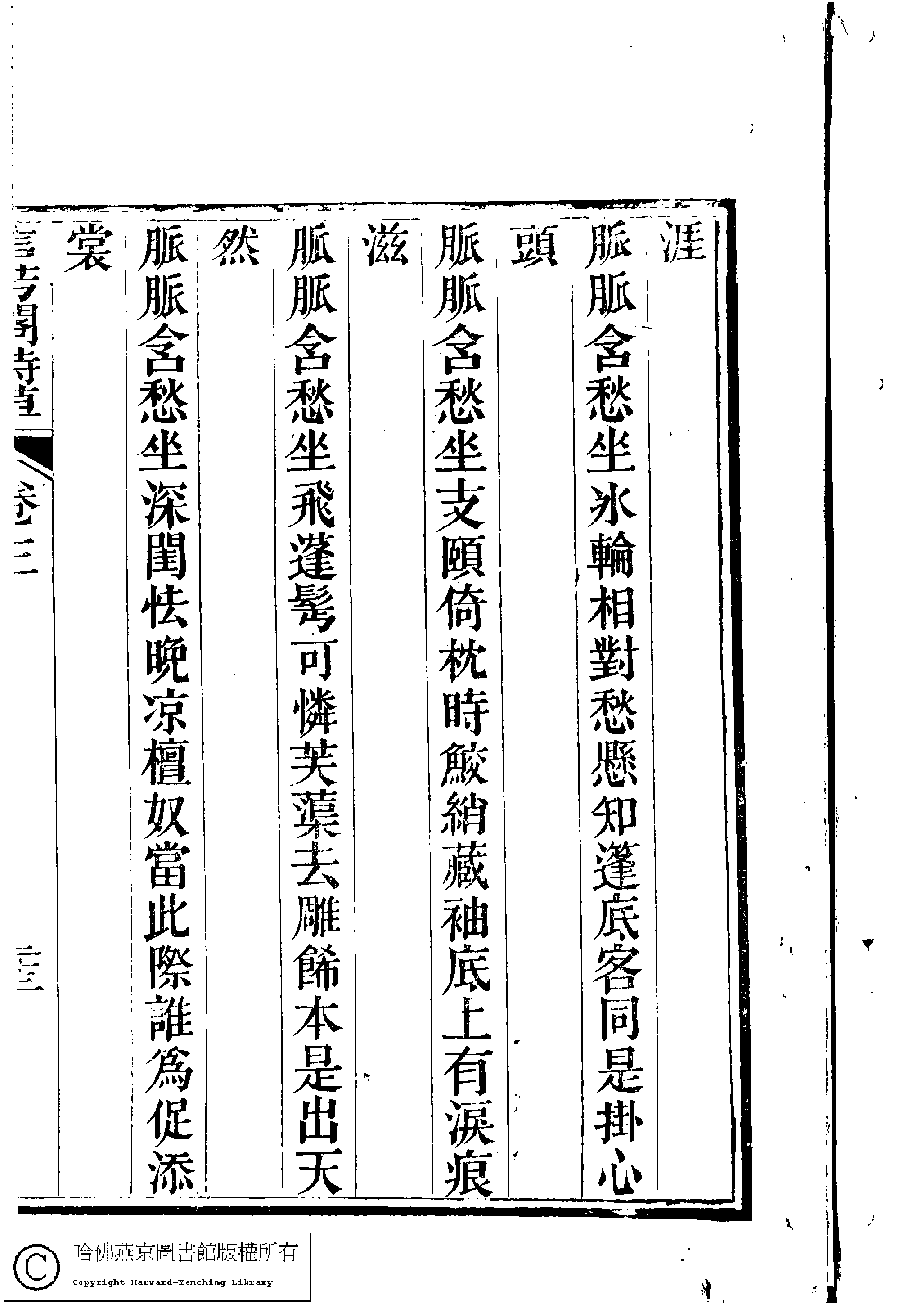 涯
脈脈含愁坐氷輪相對愁懸知蓬底客同是掛心
頭
脈脈含愁坐支頤倚枕時鮫綃藏袖底上有淚痕
滋
脈脈含愁坐飛蓬髩可憐芙蕖去雕餙本是出天
然
脈脈含愁坐深閨怯晚凉檀奴當此際誰爲促添
裳
卷三
三
哈佛燕京圖書館版權所有
Copyright Harvard-Yenching Library